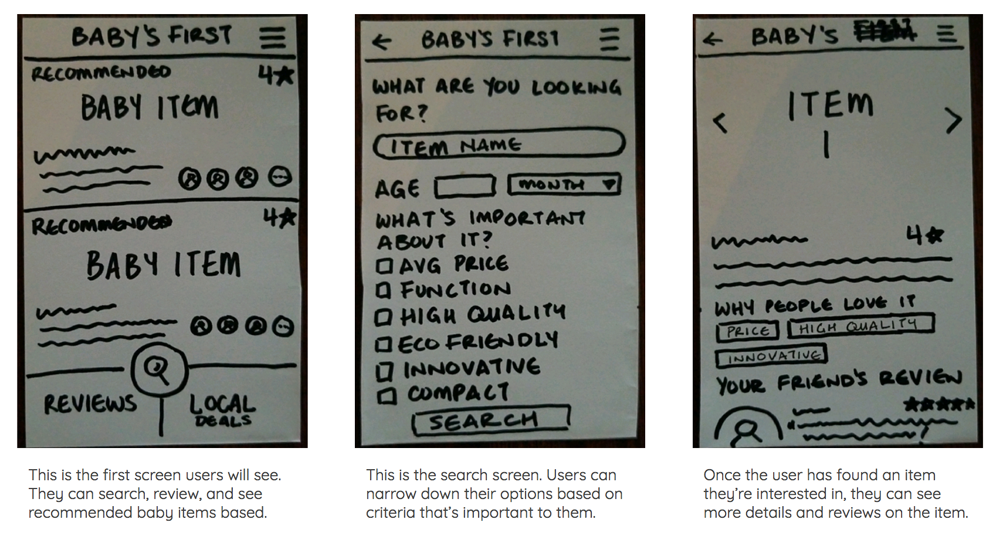 BABY'S FIRST
RECOMMENDED 4★
BABY ITEM
RECOMMENDED 4★
BABY ITEM
REVIEWS
LOCAL
DEALS
This is the first screen users will see.
They can search, review, and see
recommended baby items based.
← BABY'S FIRST
WHAT ARE YOU LOOKING
FOR?
ITEM NAME
AGE MONTH ▼
WHAT'S IMPORTANT
ABOUT IT?
AVG PRICE
FUNCTION
HIGH QUALITY
ECO FRIENDLY
INNOVATIVE
COMPACT
SEARCH
This is the search screen. Users can
narrow down their options based on
criteria that's important to them.
← BABY'S
< ITEM >
1
4★
WHY PEOPLE LOVE IT
PRICE HIGH QUALITY
INNOVATIVE
YOUR FRIEND'S REVIEW
★★★★★
Once the user has found an item
they're interested in, they can see
more details and reviews on the item.